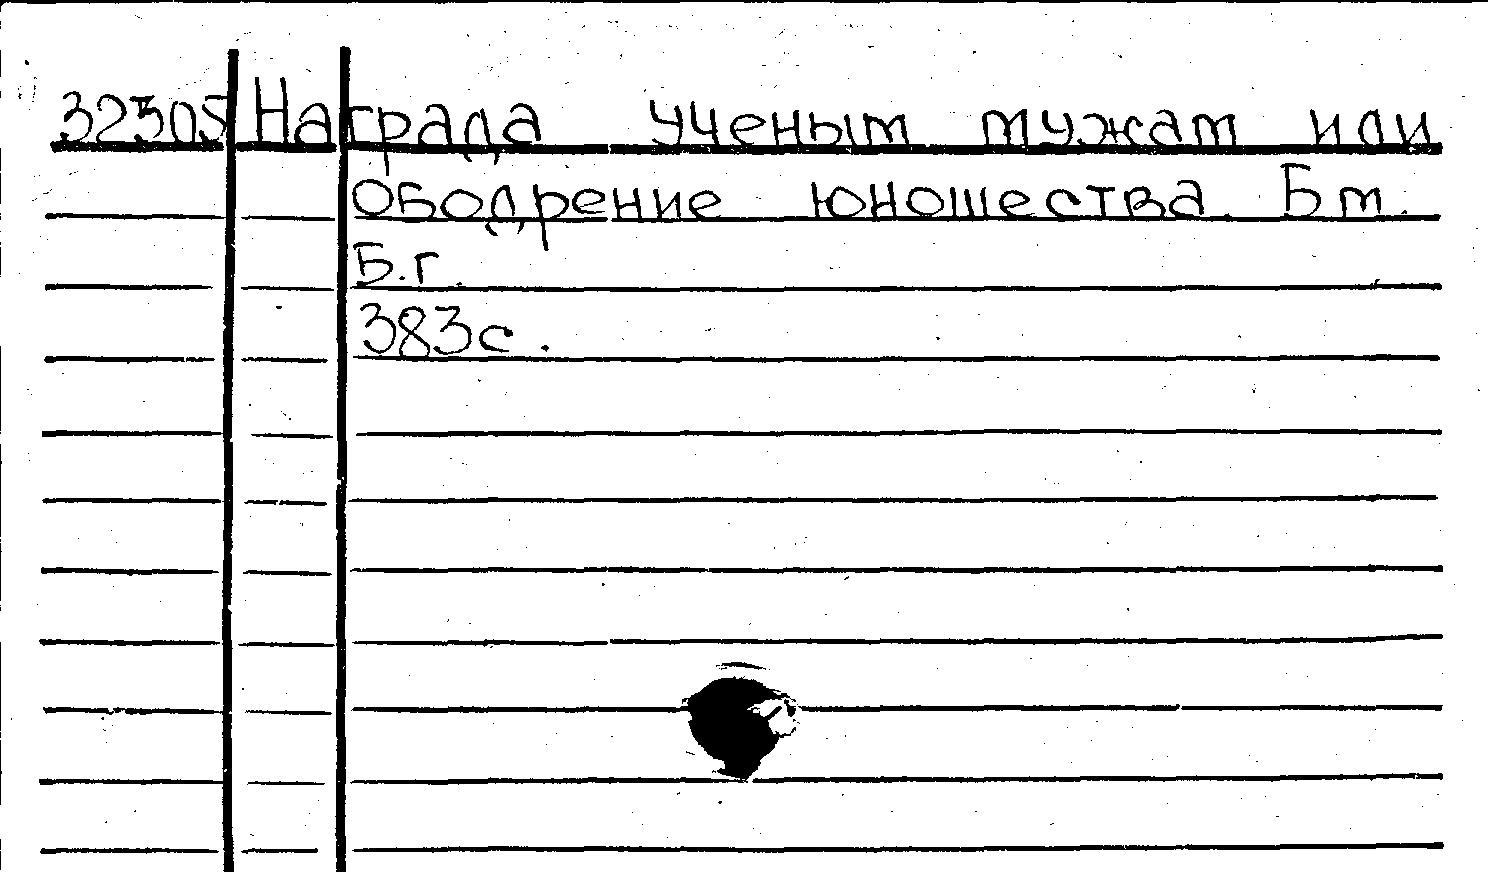 32505 Награда ученым мужам или
Ободрение юношества. Бм.
Б.г.
383с.